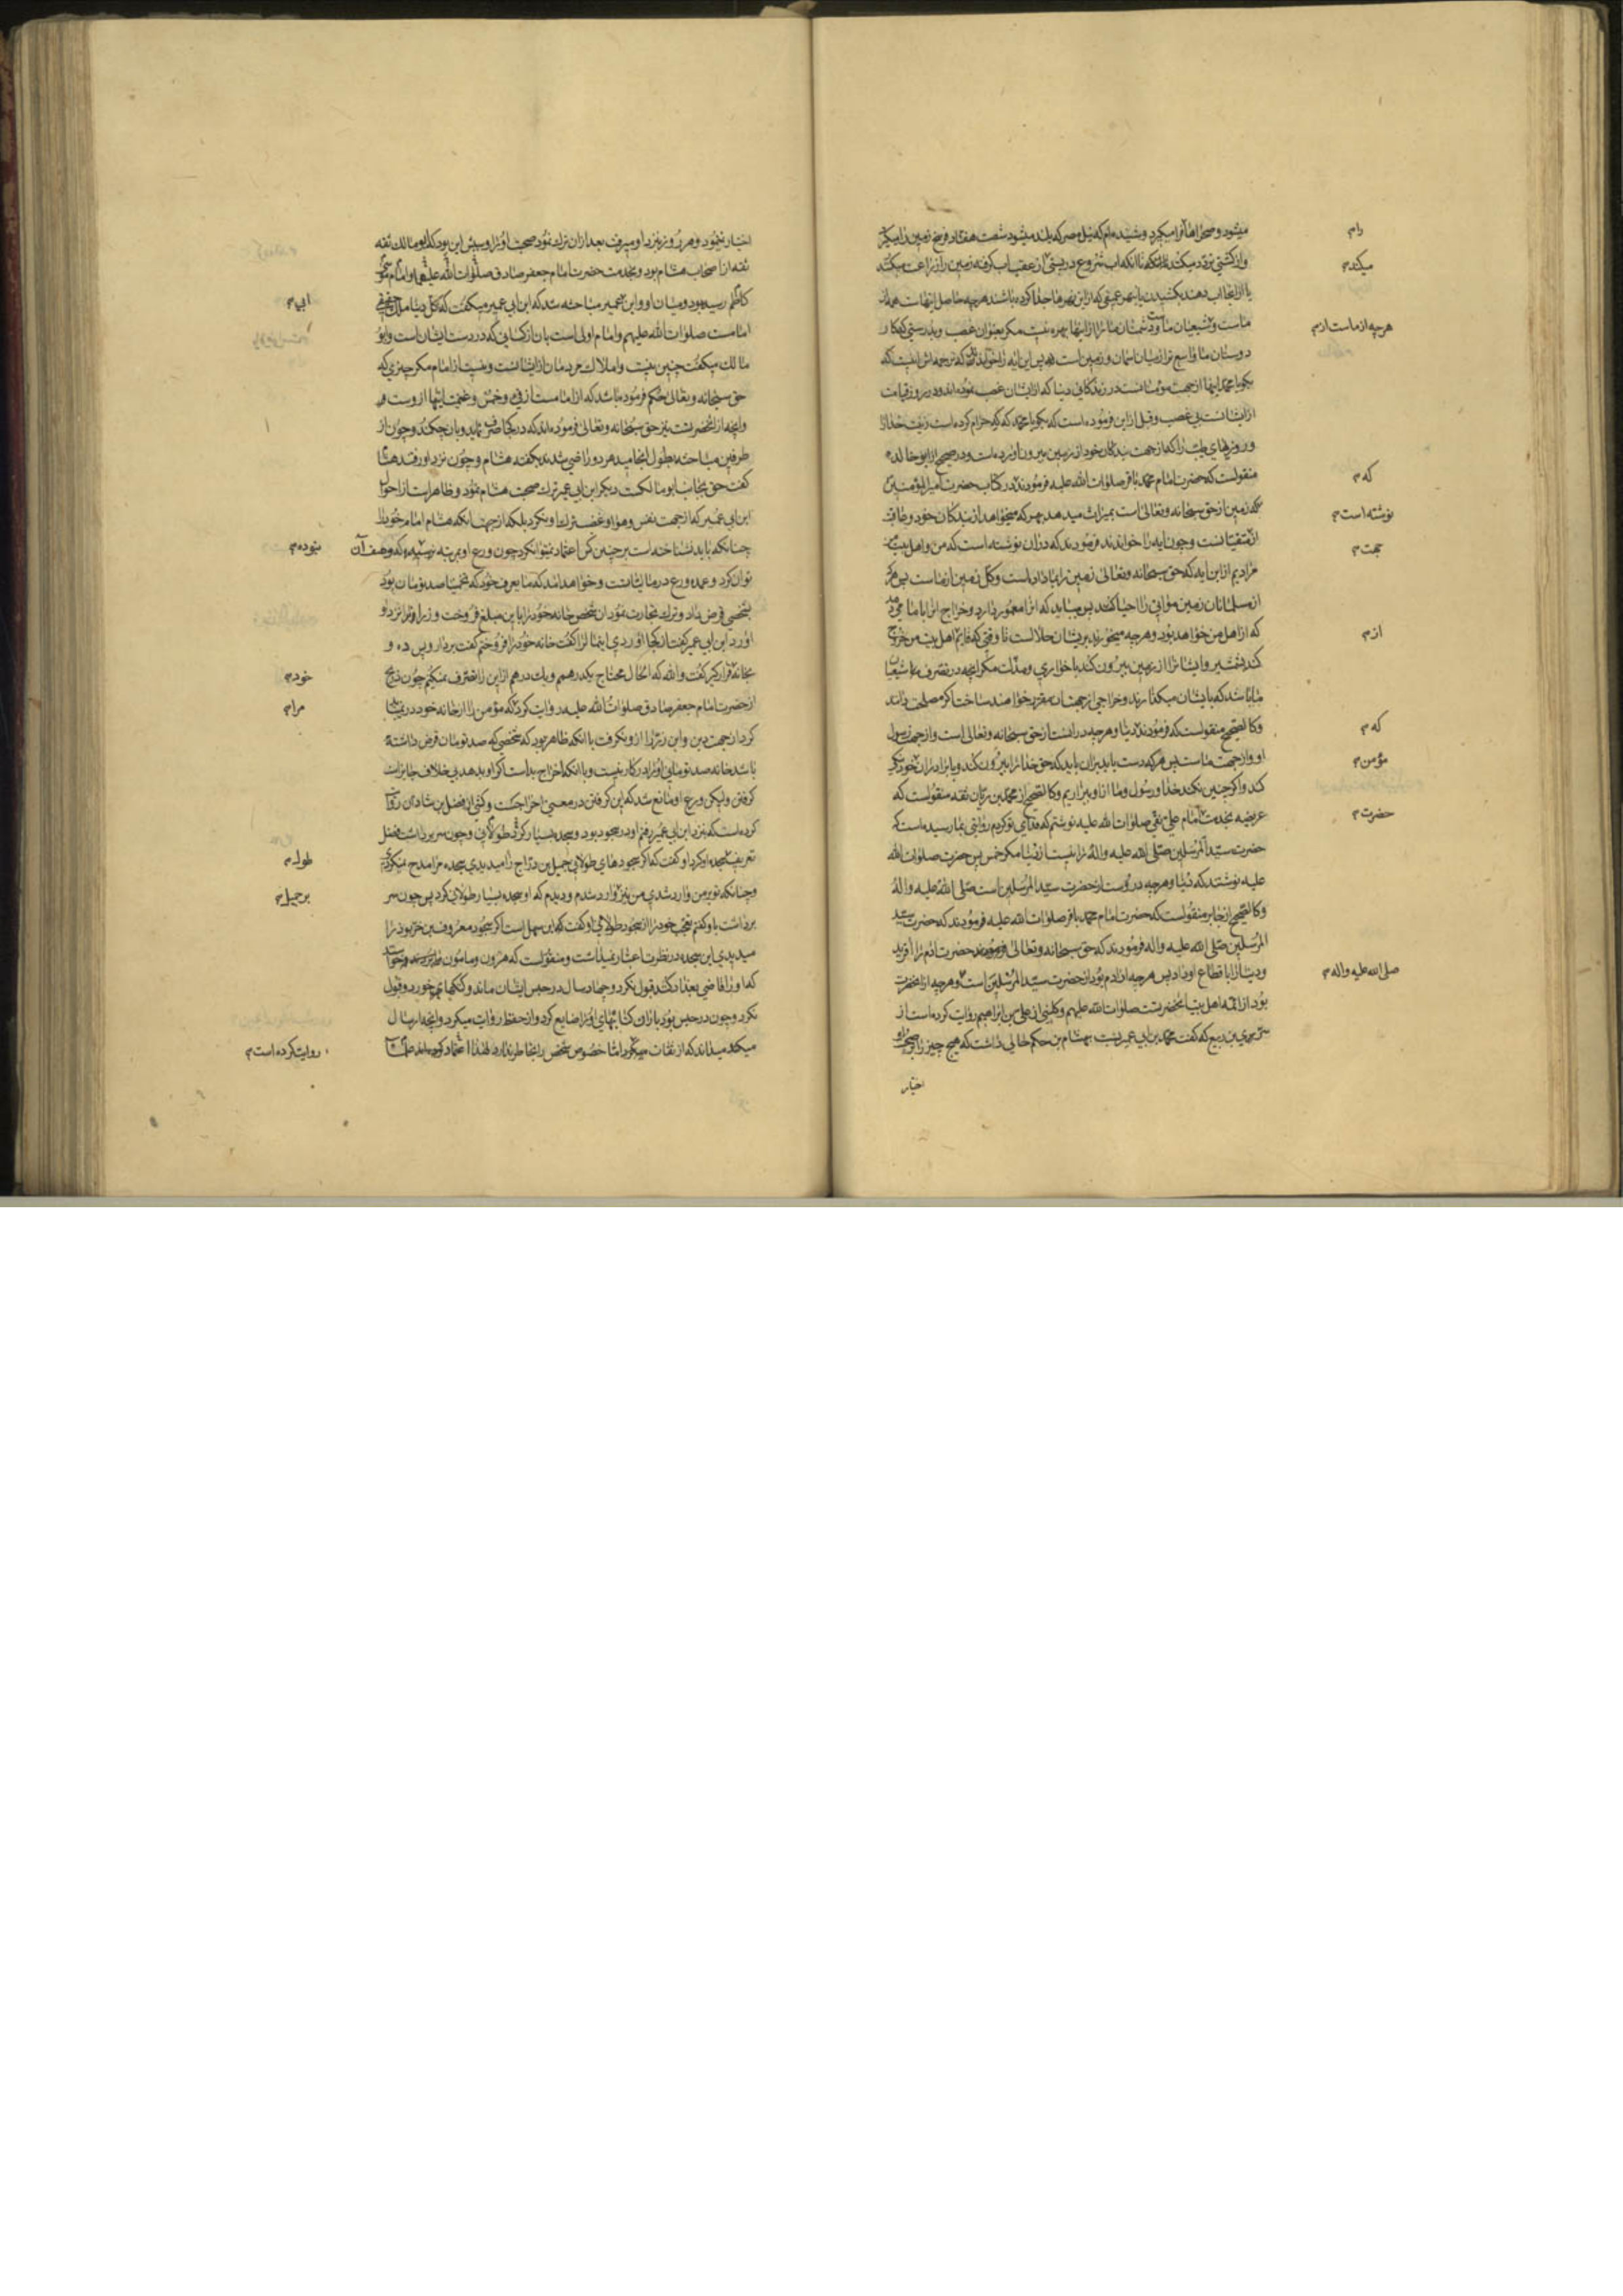 میشود و صحراها را فرا میکیرد و شنیده ام که نیل مصر که بلند میشود شصت هفتاد فرسخ زمین را میکیرد
و از کشتی تردد میکنند تا انکه اب شروع در پستی از عقب اب کرفته زمین را زراعت میکنند
یا از اینجا اب دهند
ماست و شیعیان ما و دشمنان ما را از اینها بهره نیست مکر بعنوان غصب و بدرستی که کار
دوستان ما واسع تر از میان اسمان و زمین است پس این ایه را خواندند که ترجمه اش اینست که
بکو یا محمد اینها از جهت مؤمنانست در زندکانی دنیا که از ایشان غصب نموده اند و در روز قیامت
از ایشانست بی غصب و قبل از این فرموده است که بکو یا محمد که که حرام کرده است زینت خدا را
و روزیهای طیب را که از جهت بندکان خود از زمین بیرون اورده است و در صحیح از ابو خالد
منقولست که حضرت امام محمد باقر صلوات الله علیه فرمودند در کتاب حضرت امیر المؤمنین
که زمین از حق سبحانه و تعالی است بمیراث میدهد بهر که میخواهد از بندکان خود و عاقبت
از متقیانست و چون ایه را خواندند فرمودند که در ان نوشته است که من و اهل بیت من
مرادیم از این ایه که حق سبحانه و تعالی زمین را بما داده است و کل زمین از ماست پس هر که
از مسلمانان زمین مواتی را احیا کند پس میباید که انرا معمور دارد و خراج انرا بامام دهد
که از اهل من خواهد بود و هر چه میخورند بر ایشان حلالست تا وقتی که قایم اهل بیت من خروج
کند بشمشیر و ایشانرا از زمین بیرون کند با خواری و مذلت مکر انچه در تصرف شیعیان
ما باشد که بایشان میکذارند و خراجی از جهت ایشان مقرر خواهند ساخت اکر مصلحت دانند
و کالصحیح منقولست که فرمودند دنیا و هر چه در انست از حق سبحانه و تعالی است و از جهت رسول
او و از جهت ماست پس هر که دست یابد بر ان باید که حق خدا را بیرون کند و با برادران خود نیکی
کند و اکر چنین نکند خدا و رسول و ما از او بیزاریم و کالصحیح از محمد بن ریان ثقه منقولست که
عریضه بخدمت امام علی نقی صلوات الله علیه نوشتم که فدای تو کردم روایتی بما رسیده است که
حضرت سید المرسلین صلی الله علیه و اله را نیست از دنیا مکر خمس پس حضرت صلوات الله
علیه نوشتند که دنیا و هر چه در اوست از حضرت سید المرسلین است صلی الله علیه و اله
و کالصحیح از جابر منقولست که حضرت امام محمد باقر صلوات الله علیه فرمودند که حضرت سید
المرسلین صلی الله علیه و اله فرمودند که حق سبحانه و تعالی حضرت ادم را افرید
و دنیا را باقطاع او داد پس هر چه از ادم بود از حضرت سید المرسلین است و هر چه از انحضرت
بود از ائمه اهل بیت انحضرتست صلوات الله علیهم و کلینی از علی بن ابراهیم روایت کرده است از
سری بن ربیع که کفت محمد بن ابی عمیر نسبت بهشام بن حکم حالی داشت که هیچ چیز را بر صحبت او
اختیار
رام
میکندم
هرچه از ماست ازم
که م
نوشته است م
جهت م
ازم
که م
مؤمن م
حضرت م
صلی الله علیه واله م
اختیار نمینمود و هر روز بنزد او میرفت بعد از ان ترک نمود صحبت او را و سبش این بود که ابو مالک ثقه
ثقه از اصحاب هشام بود و بخدمت حضرت امام جعفر صادق صلوات الله علیهما و امام موسی
کاظم رسیده بود و میان او و ابن عمیر مباحثه شد که ابن ابی عمیر میکفت که کل دنیا مال
امامست صلوات الله علیهم و امام اولی است بان از کسانی که در دست ایشان است و ابو
مالک میکفت چنین نیست و املاک مردمان از ایشانست و نیست از امام مکر چیزی که
حق سبحانه و تعالی حکم فرموده باشد که از امامست از فی و خمس و غنیمت اینها از وست و
و انچه از انحضرتست نیز حق سبحانه و تعالی فرموده اند که در کجا صرف نماید و بان چکند و چون از
طرفین مباحثه بطول انجامید هر دو راضی شدند بکفته هشام و چون نزد او رفتند هشام
کفت حق بجانب ابو مالکست دیکر ابن ابی عمیر ترک صحبت هشام نمود و ظاهر است از احوال
ابن ابی عمیر که از جهت نفس و هوا و غضب ترک او نکرد بلکه از جهت انکه هشام امام خود را
چنانکه باید نشناخته است بر چنین کس اعتماد نمیتوان کرد چون ورع او بمرتبه نرسیده که وصف آن
توان کرد و عمده ورع در مالیاتست و خواهد امد که مایعرف خود که تخمینا صد تومان بود
بشخصی قرض داد و ترک تجارت نمود ان شخص خانه خود را باین مبلغ فروخت و زر او را نزد او
اورد ابن ابی عمیر کفت از کجا اوردی اینمالرا کفت خانه خود را فروختم کفت بردار و پس ده و
بخانه قرار کیر کفت والله که الحال محتاج یکدرهمم و یک درهم از این را تصرف نمیکنم چون ذریح
از حضرت امام جعفر صادق صلوات الله علیه روایت کرد که مؤمن را از خانه خود در نمیتوان
کرد از جهت دین و این زر را از و نکرفت با انکه ظاهر بود که شخصی که صد تومان قرض داشته
باشد خانه صد تومانی او را در کار نیست و با انکه اخراج بد است اکر او بدهد بی خلاف جایز است
کرفتن ولیکن ورع او مانع شد که این کرفتن در معنی اخراجست و کشی از فضل بن شاذان روایت
کرده است که بنزد ابن ابی عمیر رفتم او در سجود بود و سجده بسیار طولانی کرد و چون سر برداشت فضل
تعریف سجده او کرد او کفت که اکر سجودهای طولانی جمیل بن دراج را میدیدی سجده مرا مدح نمیکردی
و چنانکه تو بر من وارد شدی من نیز وارد شدم و دیدم که او سجده بسیار طولانی کرد پس چون سر
برداشت باو کفتم تعجب خود را از سجود طولانی او کفت که این سهل است اکر سجود معروف بن خربوذ را
میدیدی این سجده در نظرت اعتبار نمیداشت و منقولست که هرون و مامون
که او را قاضی بغداد کنند قبول نکرد و چهار سال در حبس ایشان ماند و کتکها می خورد و قبول
نکرد و چون در حبس بود باران کتابهای او را ضایع کرد و از حفظ روایت میکرد و انچه ارسال
میکند میداند که از ثقات میکرد اما خصوص شخص را بخاطر ندارد لهذا اعتماد کرده اند علما
ابی م
بنوده م
خودم
مرام
طول م
بر جمیل م
روایت کرده است م